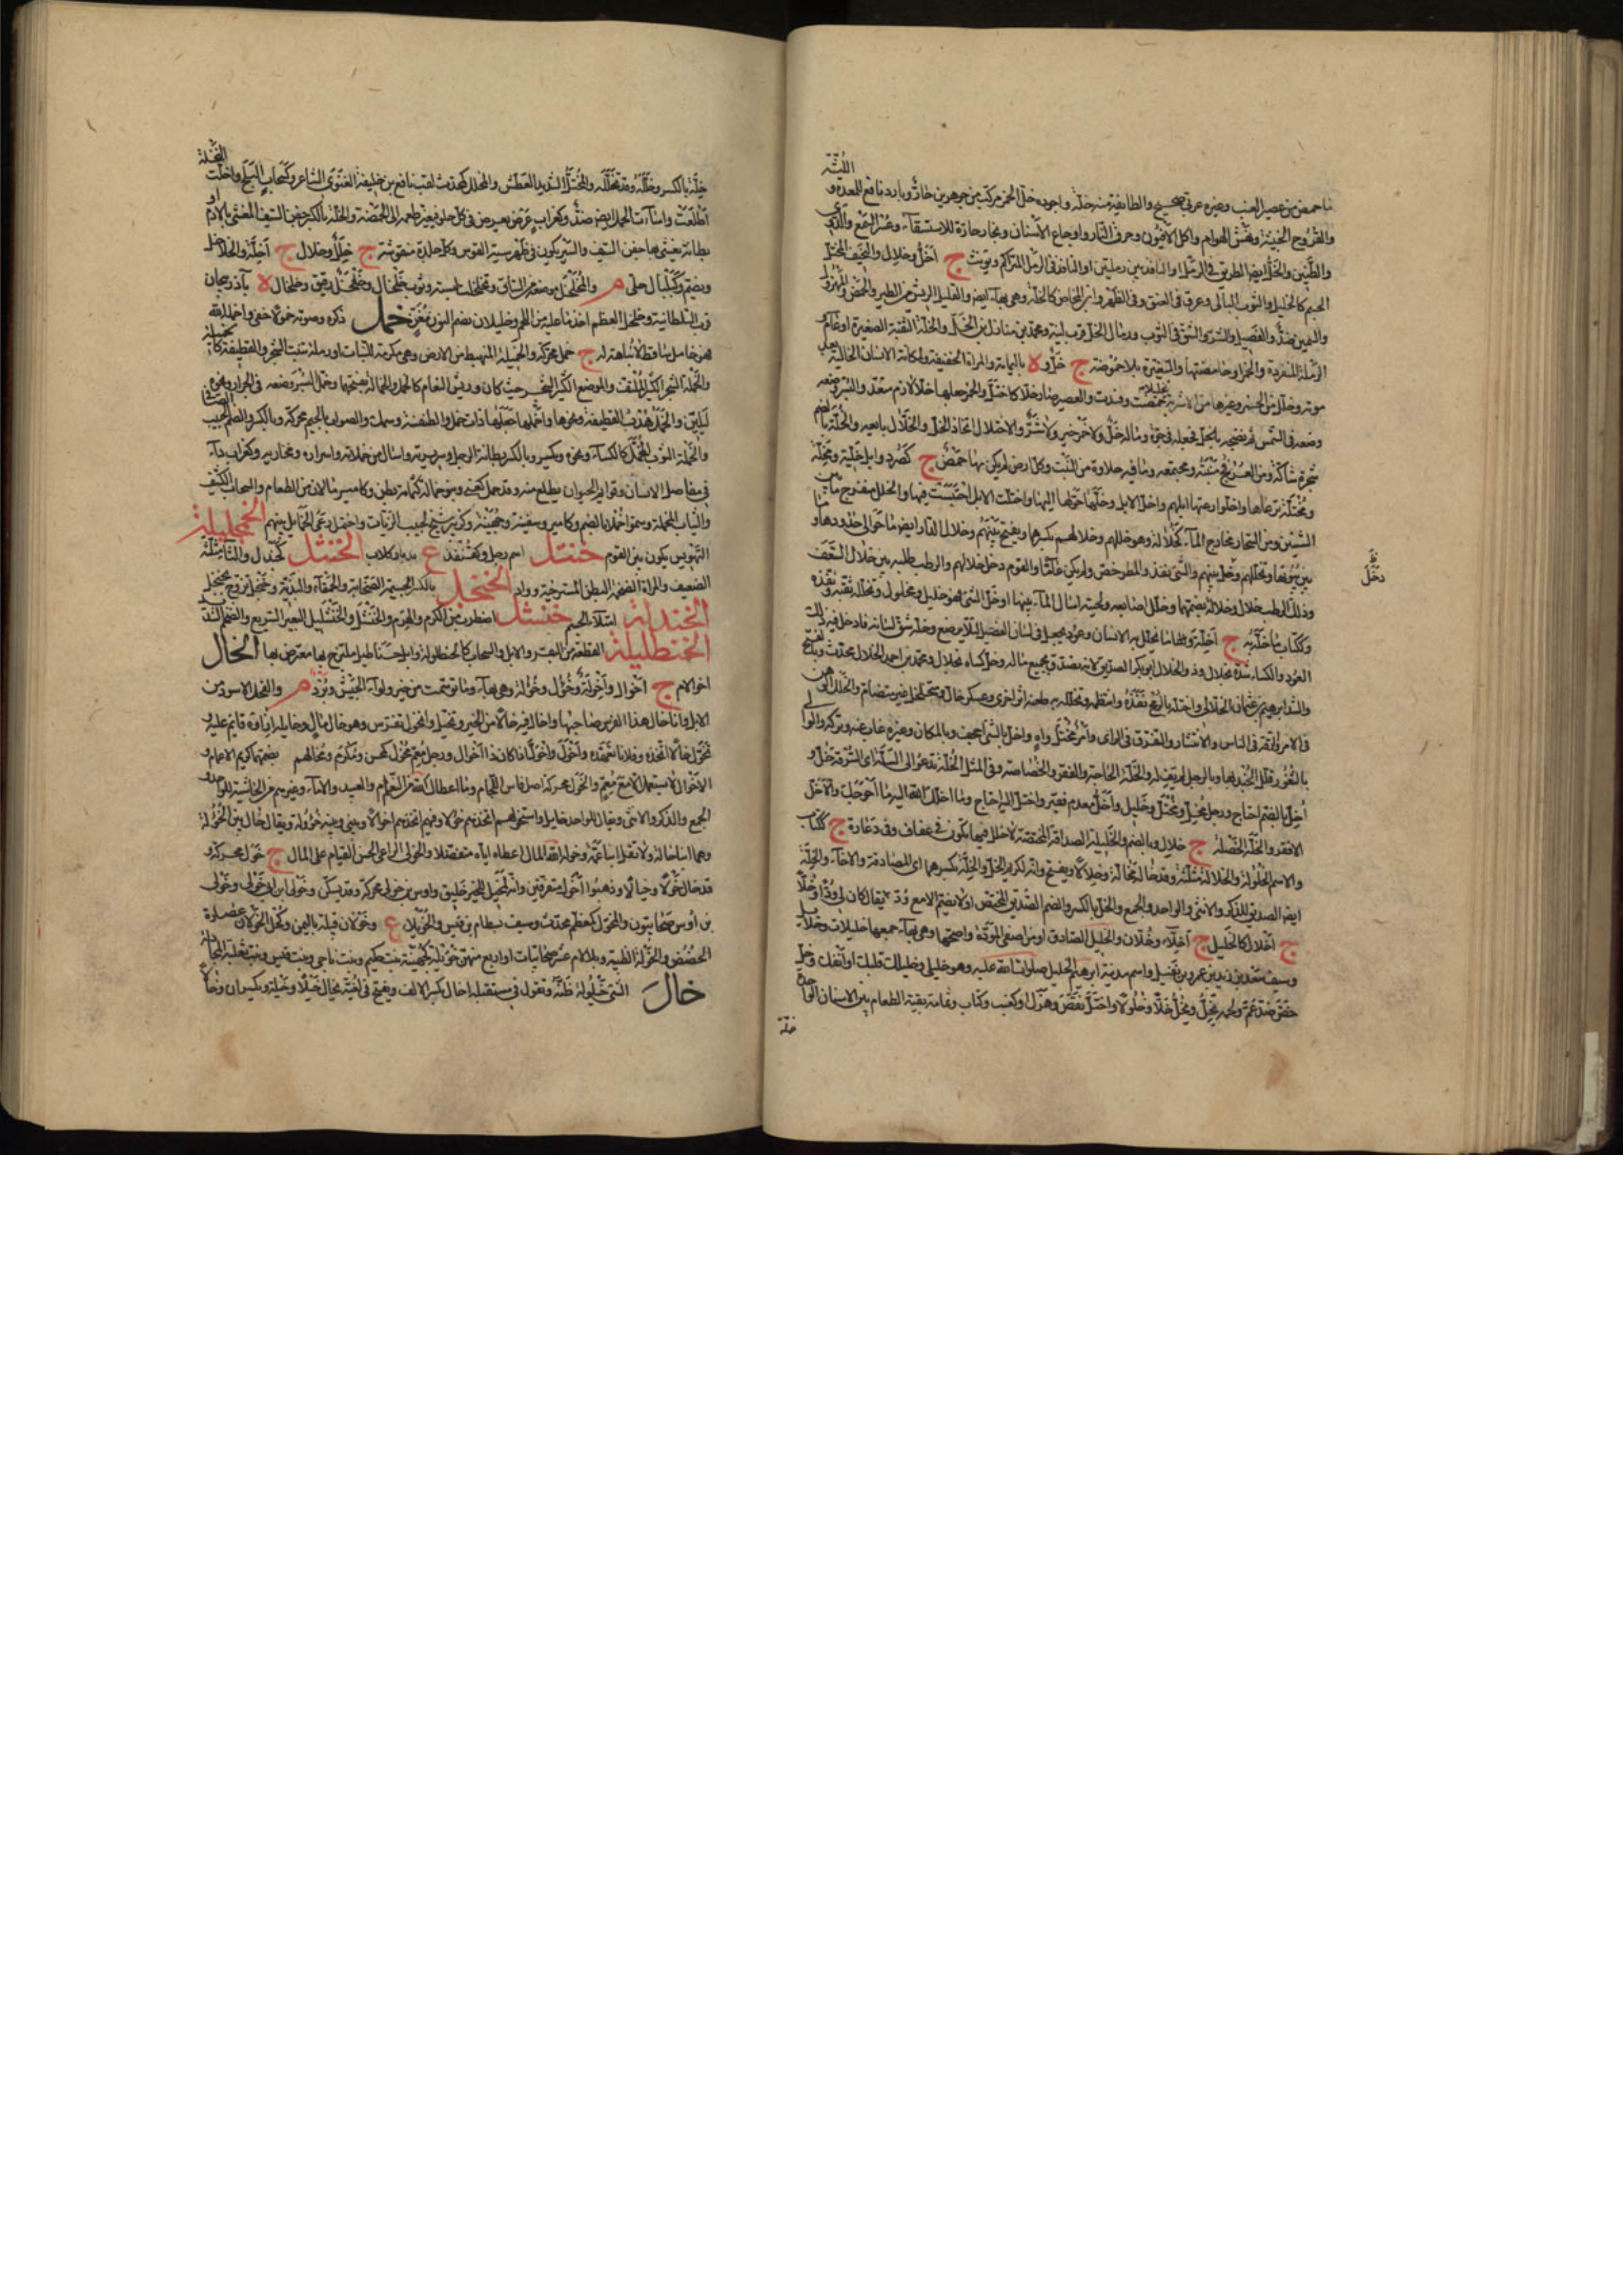 اللثة
ما حمض من عصير العنب وغيره عربي صحيح والطائفة منه خلة واجوده خل الخمر مركب من جوهرين حار وبارد نافع للمعدة و
والقروح الخبيثة ونهش الهوام واكل الافيون وحرق النار واوجاع الاسنان وبخار حاره للاستسقاء وعسر السمع والدوي
والطنين والخل ايضا الطريق في الرمل او النافذ بين رملتين او النافذ في الرمل المتراكم ويؤنث ج اخل وخلال والنحيف المختل
الجسم كالخليل والثوب البالي وعرق في العنق وفي الظهر وابن المخاض كالخلة وهي بهاء ايضا والقليل الريش من الطير والحمض والمهزول
والسمين ضد والفصيل والشر والشق في الثوب ورمال الخل قرب لينة ومحمد بن منازل بن الخل والخلة الثقبة الصغيرة او عام
الرملة المنفردة والخمر او حامضتها والمتغيرة بلا حموضة ج خل و ة باليمامة والمراة الخفيفة ومكانة الانسان الخالية بعد
موته وخللت الخمر وغيرها من الاشربة تخليلا حمضت وفسدت والعصير صار خلا كاختل والخمر جعلها خلا لازم متعد والبسر وضعه
وضعه في الشمس ثم نضحه بالخل فجعله في جرة وماله خل ولا خمر خير ولا شر والاختلال اتخاذ الخل والخلال بايعه والخلة بالضم
شجرة شاكة ومن العرفج منبته ومجتمعه وما فيه حلاوة من النبت وكل ارض لم يكن بها حمض ج كصرد وابل خلية ومخلة
ومختلة ترعاها واخلوا رعتها ابلهم واخل الابل وخلها حولها اليها واختلت الابل احتبست فيها والخلل منفرج ما بين
الشيئين ومن السحاب مخارج الماء كخلاله وهو خللهم وخلالهم بكسرهما ويفتح بينهم وخلال الدار ايضا ما حوالى حدودها وما
بين بيوتها وتخللهم دخل بينهم والشي نفذ والمطر خص ولم يكن عاما والقوم دخل خلالهم والرطب طلبه بين خلال السعف
وذلك الرطب خلال وخلالة بضمهما وخلل اصابعه ولحيته اسال الماء بينها وخل الشي فهو خليل ومخلول وتخلله ثقبه ونفذه
وككتاب ما خله به ج اخلة وما تخلل به الانسان وعود يجعل في لسان الفصيل لئلا يرضع وخله شق لسانه فادخل فيه ذلك
العود والكساء شده بخلال وذو الخلال ابو بكر الصديق لانه تصدق بجميع ماله وخل كساه بخلال ومحمد بن احمد الخلال محدث
وابراهيم بن عثمان الخلالي واختله بالرمح نفذه وانتظمه وتخلله به طعنه اثر اخرى وعسكر خال ومتخلخل غير متضام والخلل الوهن
في الامر والرقة في الناس والانتشار والتفرق في الراى وامر مختل واه واخل بالشي اجحف وبالمكان وغيره غاب عنه وتركه والوالي
بالثغور قلل الجند بها وبالرجل لم يف له والخلة الحاجة والفقر والخصاصة وفي المثل الخلة تدعو الى السلة اى السرقة خل و
اخل بالضم احتاج ورجل مخل ومختل وخليل واخل معدم فقير واختل اليه احتاج وما اخلك الله اليه ما احوجك والاخل
الافقر والخلة الخصلة ج خلال وبالضم والخليلة الصداقة المختصة لا خلل فيها تكون في عفاف وفي دعارة ج ككتاب
والاسم الخلولة والخلالة مثلثة وقد خاله مخالة وخلالا ويفتح وانه لكريم الخل والخلة بكسرهما اى المصادقة والاخاء والخلة
ايضا الصديق للذكر والانثى والواحد والجمع والخل بالكسر والضم الصديق المختص او لا يضم الا مع ود يقال كان لي ودا وخلا
ج اخلال كالخليل ج اخلاء وخلان والخليل الصادق او من اصفى المودة واصحها وهي بهاء جمعها خليلات وخلائل
وسيف سعيد بن زيد بن عمرو بن نفيل واسم مدينة ابراهيم الخليل صلوات الله عليه وهو خليلي وخليلك قلبك او انفك وخل
خص ضد عم ولحمه يخل ويخل خلا وخلولا واختل نقص وهزل وكعنب وكتاب وثمامة بقية الطعام بين الاسنان الواحدة
خلة
دخل
خلة بالكسر وخللة وقد تخلله والمختل الشديد العطش والمخلل كمحدث لقب نافع بن خليفة الغنوي الشاعر وكسحاب البلح واخلت النخلة
اطلعت واساءت الحمل ايضا ضد وكغراب عرض يعرض في كل حلو فيغير طعمه الى الحموضة والخلة بالكسر جفن السيف المغشى بالادم او
بطانة يغشى بها جفن السيف والسير يكون في ظهر سية القوس وكل جلدة منقوشة ج خلل وخلال ج اخلة والخلخل
ويضم وكبلبال حلى م والمخلخل موضعه من الساق وتخلخلت لبسته وثوب خلخال وخلخل رقيق وخلخال ة بآذربيجان
قرب السلطانية وخلخل العظم اخذ ما عليه من اللحم وخليلان بضم النون مغن خمل ذكره وصوته خمولا خفى واخمله الله
فهو خامل ساقط لا نباهة له ج خمل محركة والخميلة المنهبط من الارض وهي مكرمة للنبات او رملة تنبت الشجر والقطيفة كالخميلة
والخملة الشجر الكثير الملتف والموضع الكثير الشجر حيث كان وريش النعام كالخمل والخمالة بفتحهما وخمل البسر وضعه في الجرار ونحوه
ليلين والخمل هدب القطيفة ونحوها واخملها جعلها ذات خمل والطنفسة وسمك والصواب بالجيم محركة وبالكسر والضم الحبيب المصافي
والخملة الثوب المخمل كالكساء ونحوه ويكسر وبالكسر بطانة الرجل وسريرته واسال من خملاته واسراره ومخازيه وكغراب داء
في مفاصل الانسان وقوايم الحيوان يظلع منه وقد خمل كعنى وبنو خمالة كثمامة بطن وكامير ما لان من الطعام والسحاب الكثيف
والثياب المخملة وسموا خملا بالضم وكامير وسفينة وجهينة وكزبير شيخ لحبيب الزيات واختمل رعى الخمايل الخمجليلة
التهويش يكون بين القوم خنتل اسم رجل وكقنفذ ع بديار كلاب الخنثل كجندل والثا مثلثة
الضعيف والمراة الضخمة البطن المسترخية وواد الخنجل بالكسر الجسيمة الصخابة والحمقاء والبذية وخنجل تزوج بخنجل
الخندلة امتلاء الجسم خنشل اضطرب من الكبر والهرم والخنشل والخنشليل البعير السريع والضخم الشديد
الخنطليلة القطعة من البقر والابل والسحاب كالخنطولة وابل خناطيل متفرقة الخال
اخو الام ج اخوال واخولة وخول وخؤولة وهي بهاء وما توسمت من خير ولواء الجيش وبرد م والفحل الاسود من
الابل وانا خال هذا الفرس صاحبها واخال فيه خالا من الخير وتخيل وتخول تفرس وهو خال مال وخايله ازاؤه قايم عليه و
تخول خالا اتخذه وفلانا تعهده واخول واخول اذا كان ذا اخوال ورجل معم مخول كمحسن ومكرم ومخالهم بضمهما كريم الاعمام و
الاخوال لا يستعمل الا مع معم والخول محركة اصل فاس اللجام وما اعطاك الله من النعم والعبيد والاماء وغيرهم من الحاشية للواحد و
الجمع والذكر والانثى ويقال للواحد خايل واستخولهم اتخذهم خولا وفيهم اتخذهم اخوالا وبيني وبينه خؤولة ويقال خال بين الخؤولة
وهما ابنا خالة ولا تقل ابنا عمة وخوله الله المال اعطاه اياه متفضلا والخولي الراعى الحسن القيام على المال ج خول محركة و
قد خال خولا وخيالا وذهبوا اخول اخول متفرقين وانه لمخيل للخير خليق واوس بن خولي محركة وقد يسكن وخولي بن ابي خولي وخولي
بن اوس صحابيون والمخول كمعظم محدث وسيف بسطام بن قيس والخويلاء ع وخولان قبيلة باليمن وكحل الخولان عصارة
الحضض والخولة الظبية وبلا لام عشر صحابيات او اربع منهن خويلة كجهينة بنت حكيم وبنت ناجي وبنت قيس وبنت ثعلبة المجادلة
خال الشي خيلولة ظنه وتقول في مستقبله اخال بكسر الالف ويفتح في لغية يخال خيلا وخيلة ويكسران وخالا